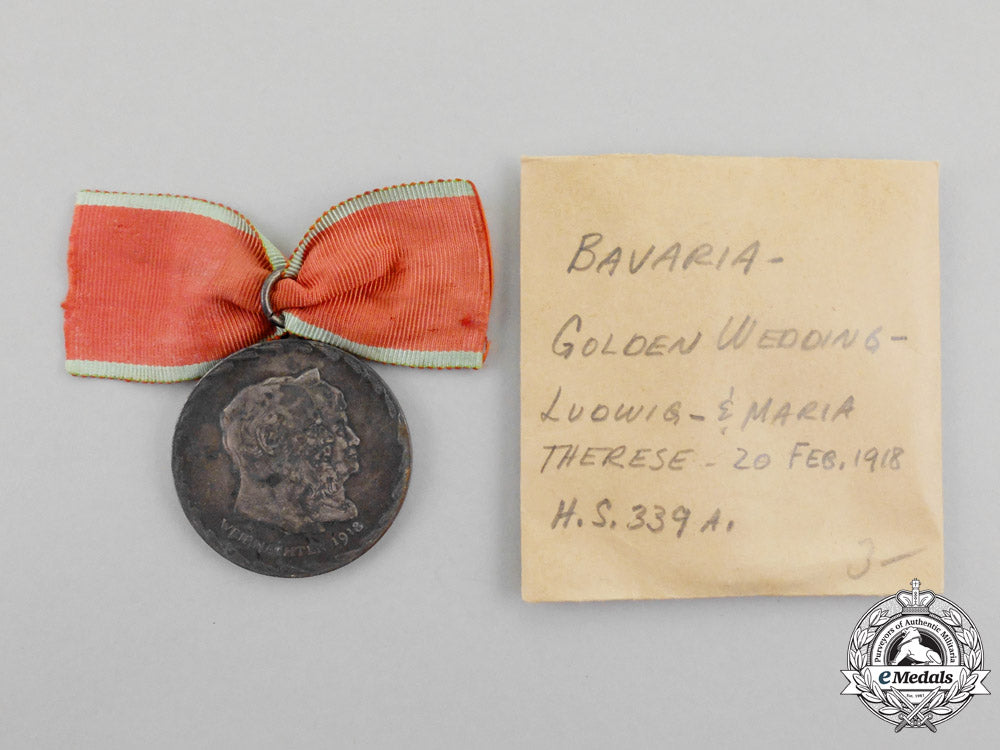 BAVARIA -
GOLDEN WEDDING -
LUDWIG - & MARIA
THERESE - 20 FEB. 1918
H.S. 339 A.
3 -
WEIHNACHTEN 1918
Purveyors of Authentic Militaria
eMedals
Est. 1987